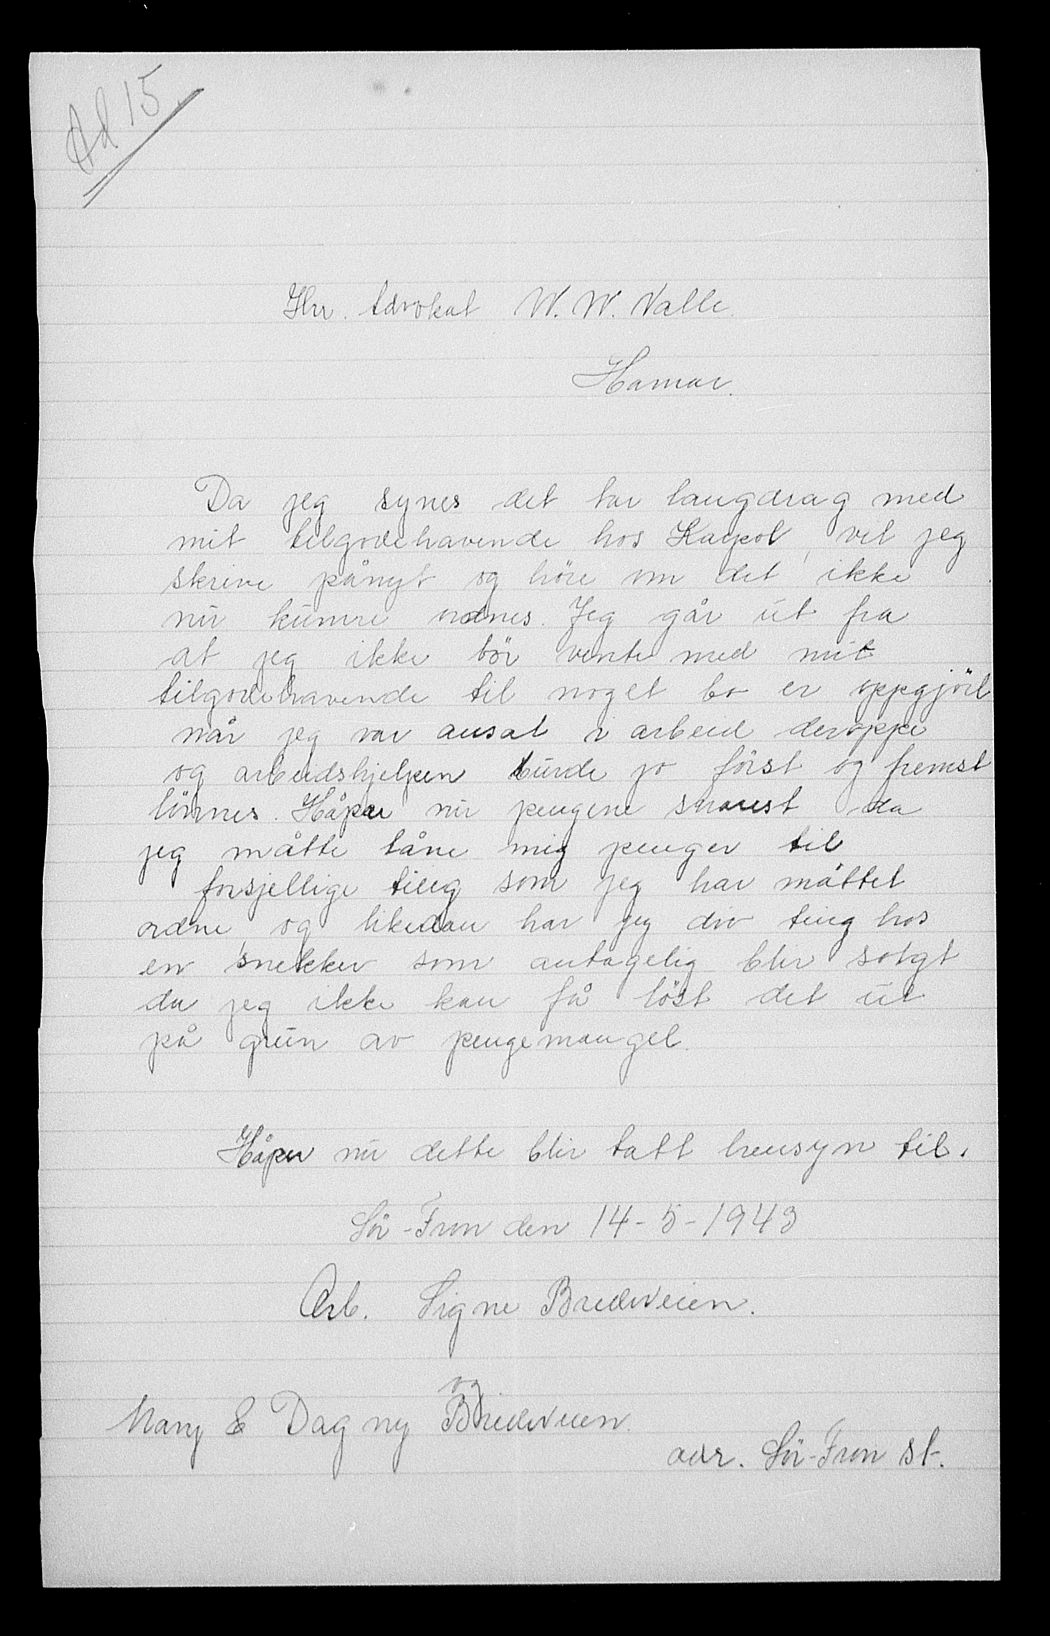 Ad 15
Hrr. Advokat W. W. Valle.
Hamar.
Da jeg synes det tar langdrag med
mit tilgodehavende hos Karpol, vil jeg
skrive pånyt og höre om det ikke
nu kunne ordnes. Jeg går ut fra
at jeg ikke bör vente med mit
tilgodehavende til noget bo er oppgjört
når jeg var ansat i arbeid deroppe
og arbeidshjelpen burde jo först og fremst
lönnes. Håper nu pengene snarest da
jeg måtte låne mig penger til
forsjellige ting som jeg har måttet
ordne, og likedan har jeg div ting hos
en snekker som antagelig blir solgt
da jeg ikke kan få löst det ut
på grun av pengemangel.
Håper nu dette blir tatt hensyn til.
Sör-Fron den 14-5-1943
Arb. Signe Bredeveien.
og
Mary E Dagny Bredeveien.
adr. Sör-Fron st.